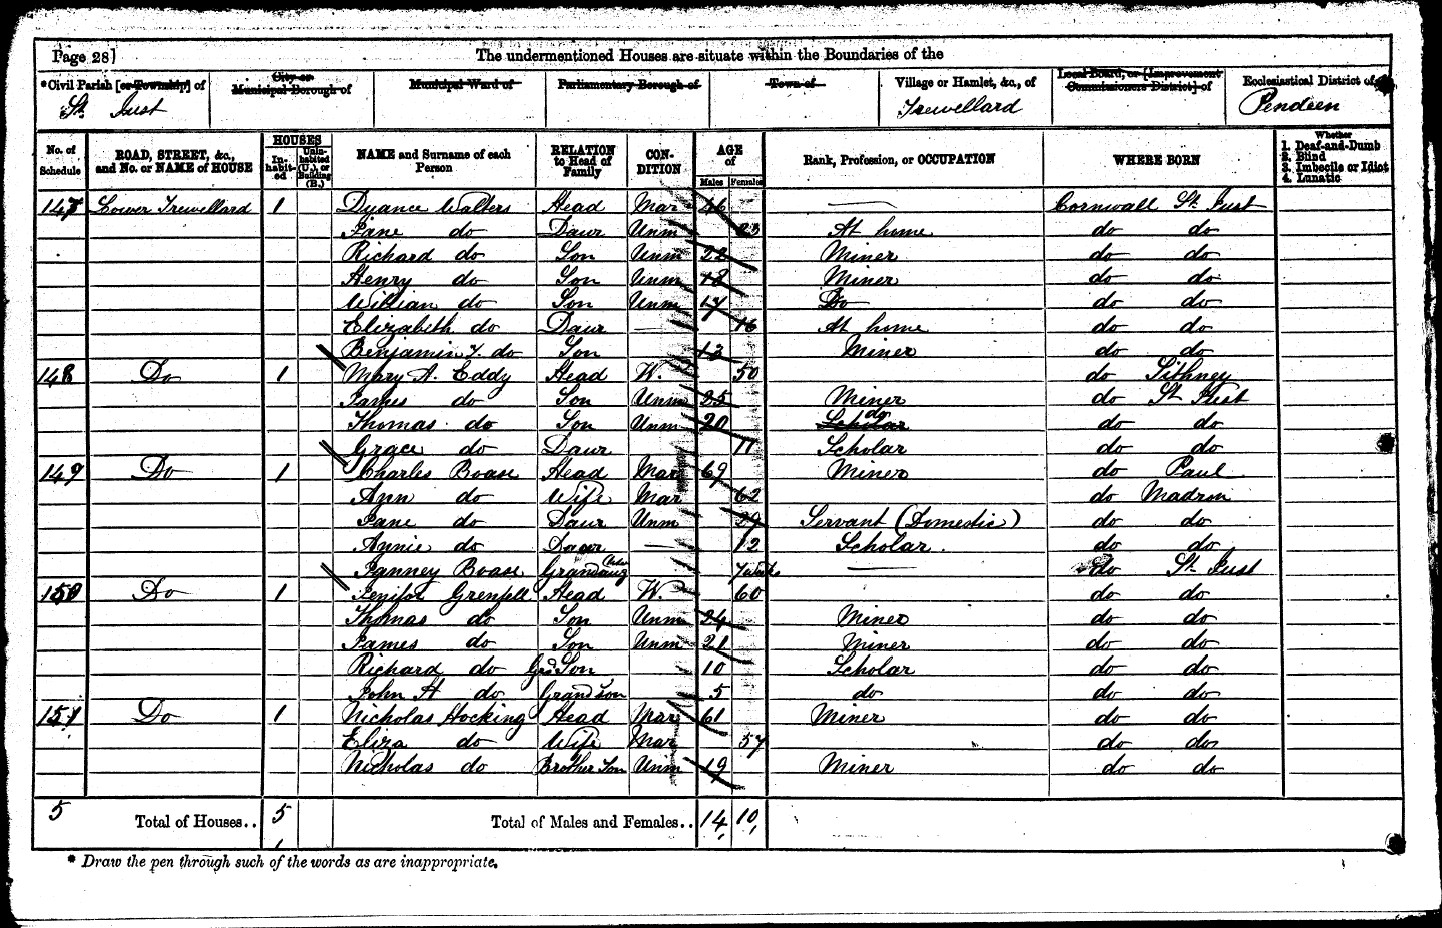 Page 28]
The undermentioned Houses are situate within the Boundaries of the
*Civil Parish [or Township] of
City or Municipal Borough of
Municipal Ward of
Parliamentary Borough of
Town of
Village or Hamlet, &c., of
Local Board, or [Improvement Commissioners District] of
Ecclesiastical District of
St. Just
Trewellard
Pendeen
No. of Schedule
ROAD, STREET, &c., and No. or NAME of HOUSE
HOUSES
Inhabited
Uninhabited (U.), or Building (B.)
NAME and Surname of each Person
RELATION to Head of Family
CONDITION
AGE of
Males
Females
Rank, Profession, or OCCUPATION
WHERE BORN
Whether
1. Deaf-and-Dumb
2. Blind
3. Imbecile or Idiot
4. Lunatic
147 Lower Trewellard 1 Dyance Walters Head Mar 46 — Cornwall St. Just
Jane do Daur Unm 23 At home do do
Richard do Son Unm 22 Miner do do
Henry do Son Unm 18 Miner do do
William do Son Unm 17 Do do do
Elizabeth do Daur — 16 At home do do
Benjamin T. do Son 13 Miner do do
148 Do 1 Mary A. Eddy Head W. 50 do Sithney
James do Son Unm 25 Miner do St Just
Thomas do Son Unm 20 Scholar do do do
Grace do Daur 11 Scholar do do
149 Do 1 Charles Boase Head Mar 69 Miner do Paul
Ann do Wife Mar 62 do Madron
Jane do Daur Unm 29 Servant (Domestic) do do
Annie do Daur — 12 Scholar. do do
Janney Boase Grand 7 weeks — do St. Just
150 Do 1 Jenifer Grenfell Head W. 60 do do
Thomas do Son Unm 24 Miner do do
James do Son Unm 21 Miner do do
Richard do Gd Son 10 Scholar do do
John H do Grandson 5 do do do
151 Do 1 Nicholas Hocking Head Mar 61 Miner do do
Eliza do Wife Mar 57 do do
Nicholas do Brother Son Unm 19 Miner do do
5 Total of Houses.. 5 Total of Males and Females.. 14 10
* Draw the pen through such of the words as are inappropriate.